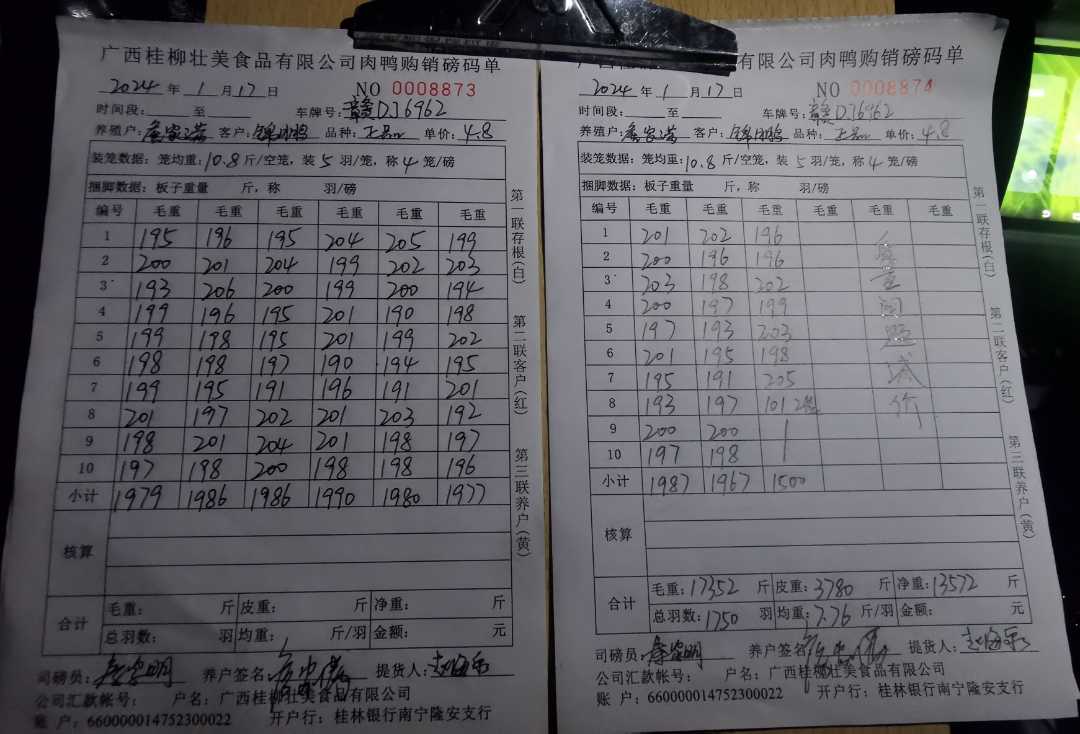 广西桂柳壮美食品有限公司肉鸭购销磅码单
2024年1月17日 NO 0008873
时间段: 至 车牌号:赣DJ6962
养殖户: 客户: 品种: 单价:4.8
装笼数据:笼均重:10.8斤/空笼,装5羽/笼,称4笼/磅
捆脚数据:板子重量 斤,称 羽/磅
编号 毛重 毛重 毛重 毛重 毛重 毛重
1 195 196 195 204 205 199
2 200 201 204 199 202 203
3 193 206 200 199 200 194
4 199 196 195 201 190 198
5 199 198 195 201 199 202
6 198 198 197 190 194 195
7 199 195 191 196 191 201
8 201 197 202 201 203 192
9 198 201 204 201 198 197
10 197 198 200 198 198 196
小计 1979 1986 1986 1990 1980 1977
核算
合计 毛重: 斤 皮重: 斤 净重: 斤
总羽数: 羽 均重: 斤/羽 金额: 元
司磅员: 养户签名: 提货人:
公司汇款帐号: 户名:广西桂柳壮美食品有限公司
账户:660000014752300022 开户行:桂林银行南宁隆安支行
第一联存根(白) 第二联客户(红) 第三联养户(黄)
广西桂 有限公司肉鸭购销磅码单
2024年1月17日 NO 0008874
时间段: 至 车牌号:赣DJ6962
养殖户: 客户: 品种: 单价:4.8
装笼数据:笼均重:10.8斤/空笼,装5羽/笼,称4笼/磅
捆脚数据:板子重量 斤,称 羽/磅
编号 毛重 毛重 毛重 毛重 毛重 毛重
1 201 202 196
2 200 196 196
3 203 198 202
4 200 197 199
5 197 193 203
6 201 195 198
7 195 191 205
8 193 197 101 2笼
9 200 200
10 197 198
小计 1987 1967 1500
核算
合计 毛重:17352斤 皮重:3780斤 净重:13572斤
总羽数:1750羽 均重:7.76斤/羽 金额: 元
司磅员: 养户签名: 提货人:
公司汇款帐号: 户名:广西桂柳壮美食品有限公司
账户:660000014752300022 开户行:桂林银行南宁隆安支行
第一联存根(白) 第二联客户(红) 第三联养户(黄)